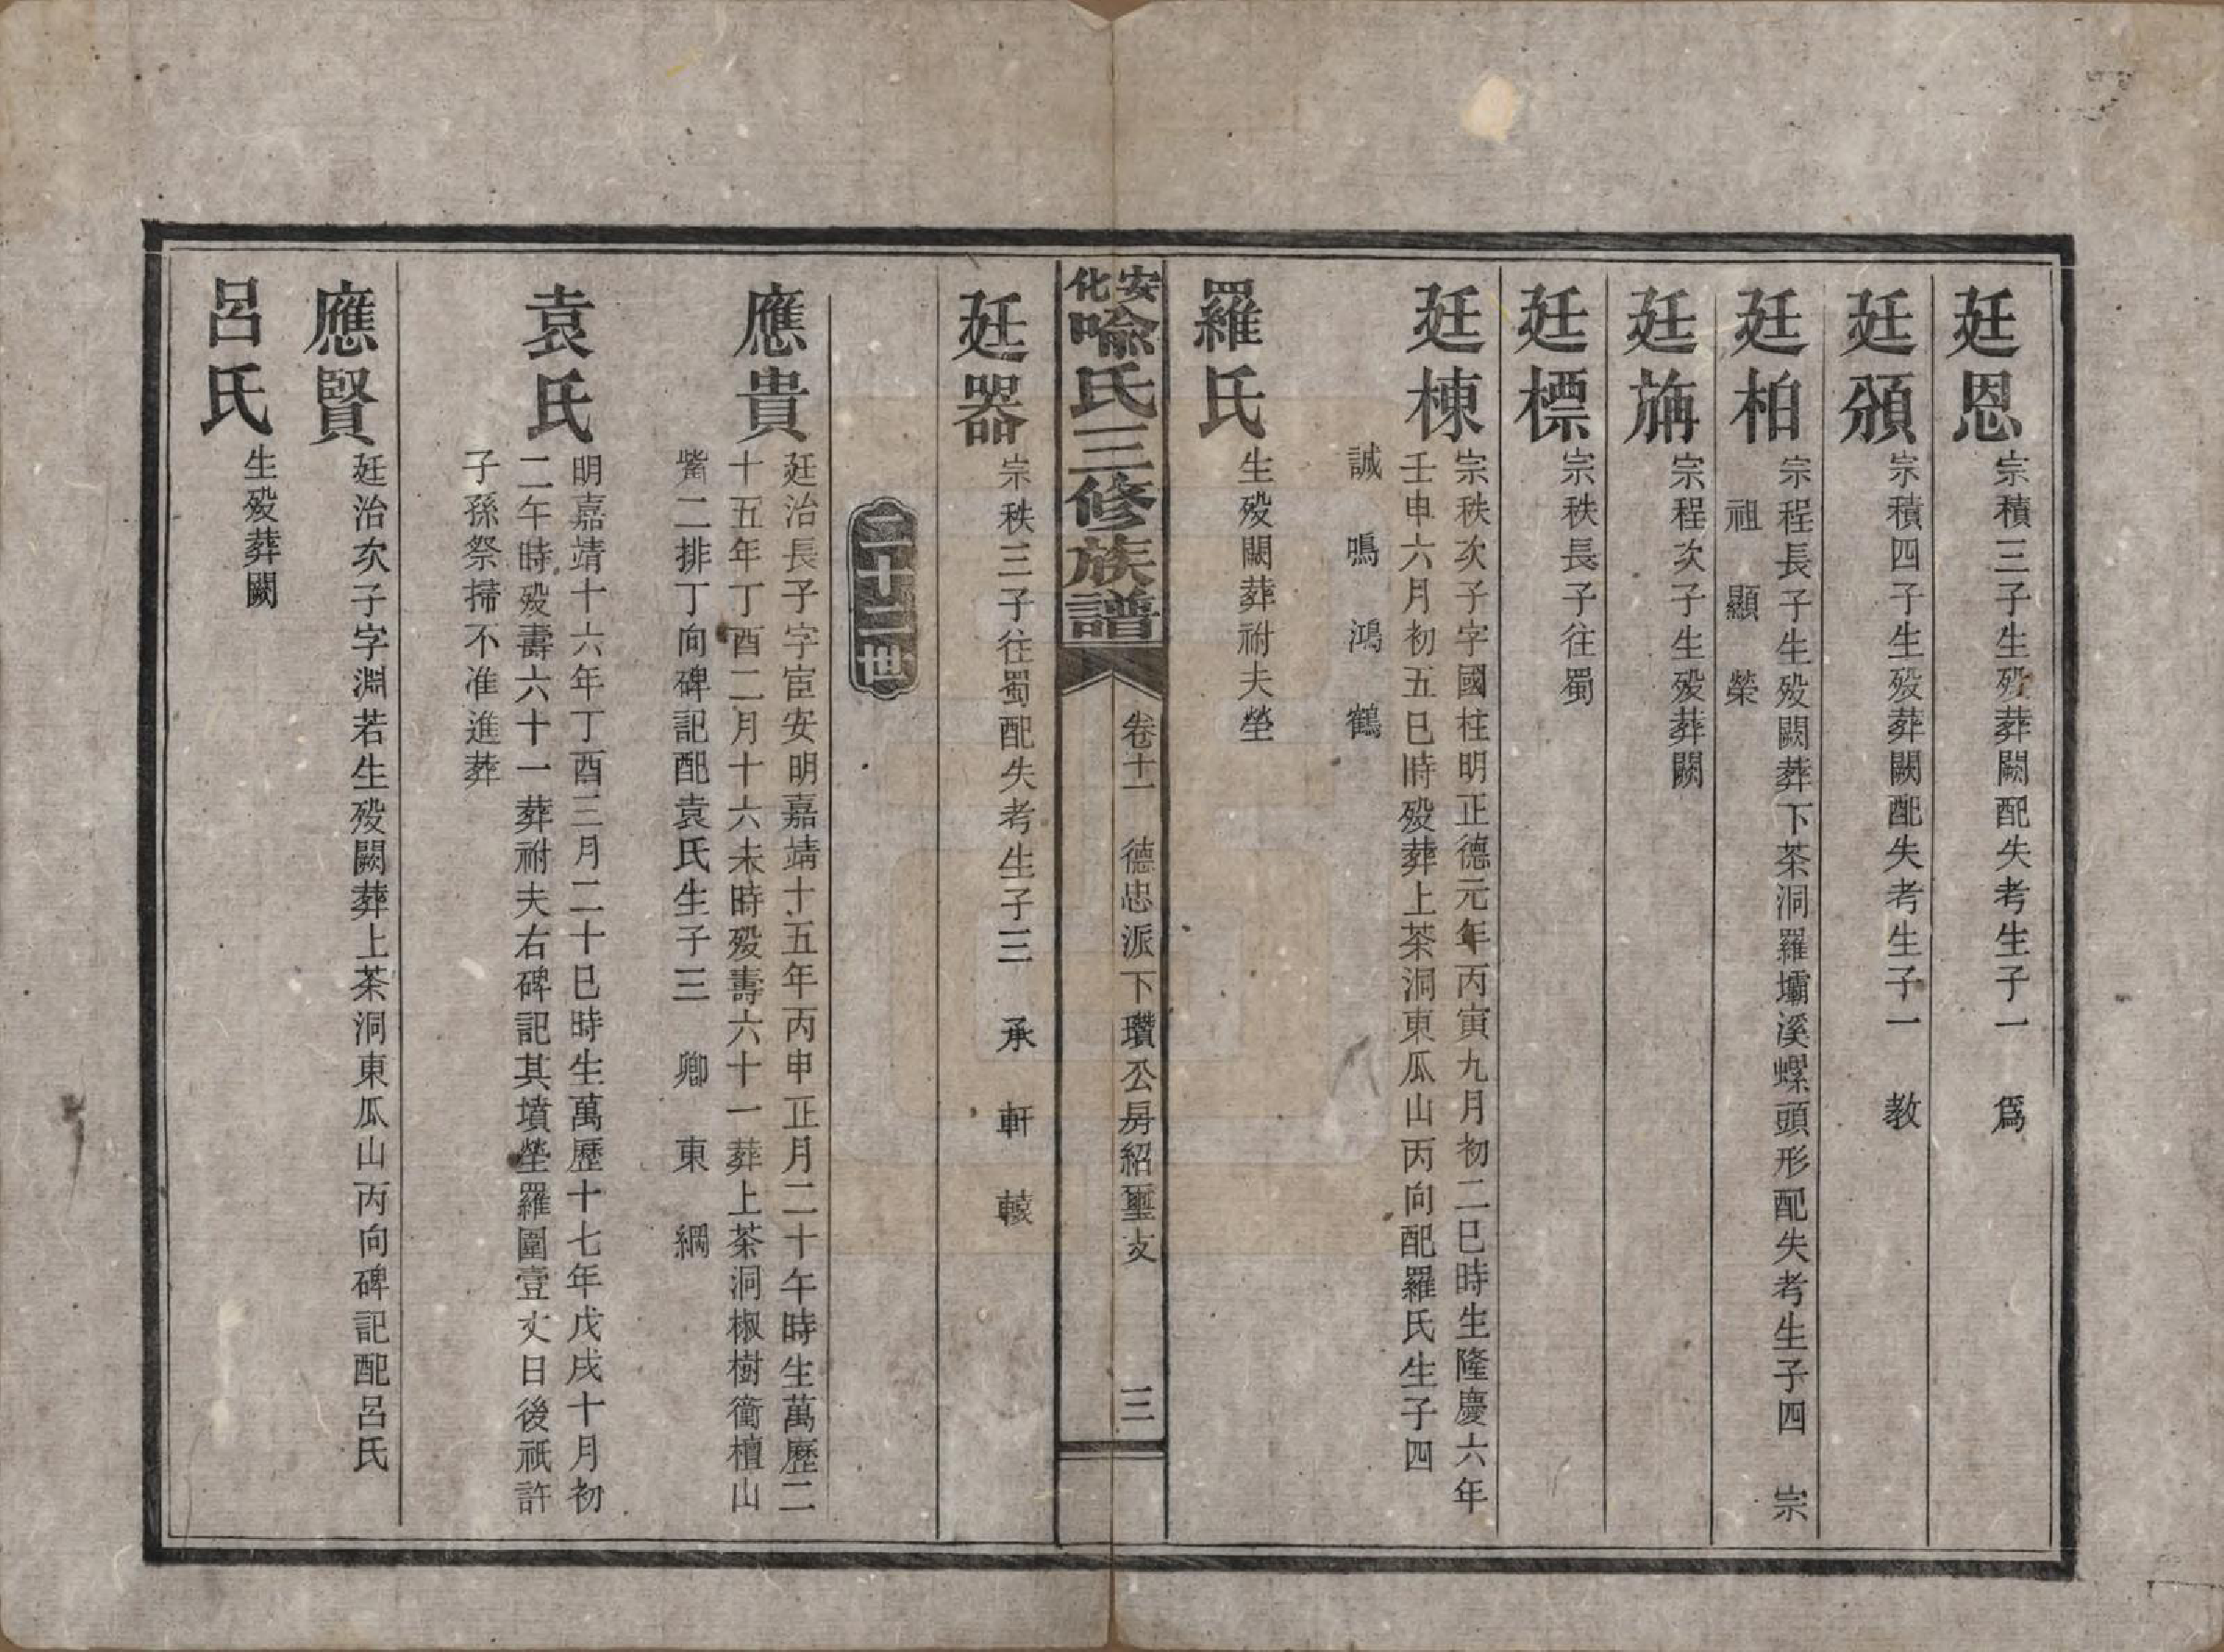 廷恩
宗積三子生歿葬闕配失考生子一　爲
廷頒
宗積四子生歿葬闕配失考生子一　教
廷柏
宗程長子生歿闕葬下茶洞羅壩溪螺頭形配失考生子四　宗
祖　顯　榮
廷旃
宗程次子生歿葬闕
廷標
宗秩長子往蜀
廷棟
宗秩次子字國柱明正德元年丙寅九月初二巳時生隆慶六年
壬申六月初五巳時歿葬上茶洞東瓜山丙向配羅氏生子四
誠　鳴　鴻　鶴
羅氏
生歿闕葬祔夫塋
安化喩氏三修族譜
卷十一　德忠派下瓚公房紹璽支
三
廷器
宗秩三子往蜀配失考生子三　承　軒　轅
二十三世
應貴
廷治長子字宦安明嘉靖十五年丙申正月二十午時生萬歷二
十五年丁酉二月十六未時歿壽六十一葬上茶洞椒樹衝檀山
觜二排丁向碑記配袁氏生子三　卿　東　綱
袁氏
明嘉靖十六年丁酉三月二十巳時生萬歷十七年戊戌十月初
二午時歿壽六十一葬祔夫右碑記其墳塋羅圍壹丈日後祇許
子孫祭掃不准進葬
應賢
廷治次子字淵若生歿闕葬上茶洞東瓜山丙向碑記配呂氏
呂氏
生歿葬闕